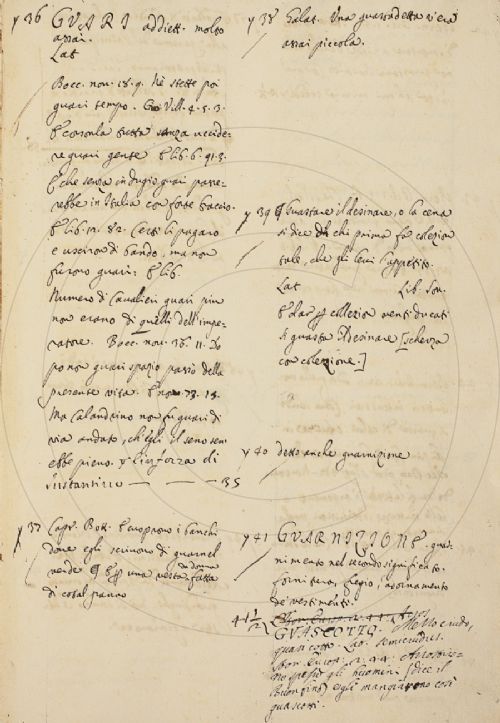 γ 36 GUARI addiett. molto
assai.
Lat.
Bocc. nov. 18. 9. Nè stette poi
guari tempo. Gio Vill. 4. 5. 3.
E corsonla tutta senza uccide-
re guari gente E lib. 6. 91. 3.
E che senza indugio guari passe-
rebbe in Italia con forte braccio.
E lib. 12. 82. Certi li pagaro
e uscirono di bando, ma non
furono guari: E lib.
Numero di Cavalieri guari piu
non erano di quelli dell'impe-
radore. Bocc. nov. 36. 11. Do
po non guari spazio passò della
presente vita. E nov. 73. 13.
Ma Calandrino non fu guari di
via andato, ch'egli il seno sem
ebbe pieno. γ
35
γ 37 Capr. Bott. E cuoprono i banchi
dove egli scrivono di guarnel
verde una vesta da donna fatta
di cotal panno
γ 38 Galat. Una guastadetta v'era
assai piccola.
γ 39 Guastare il desinare, o la cena
si dice di chi prima fa colezion
tale, che gli levi l'appetito.
Lat. Lib. Son.
E dar collezion venti ducati
si guasta Desinare [scherza
con colezione.]
γ 40 detto anche guarnizione
γ 41 GUARNIZIONE. guar-
nimento nel secondo significato.
fornitura, fregio, adornamento
de' vestimenti.
41 1/2
GUASCOTTO. Mezzo crudo,
quasi cotto. Lat. semicrudus.
gli huomini (dice il
egli mangiavono così
guascotti.